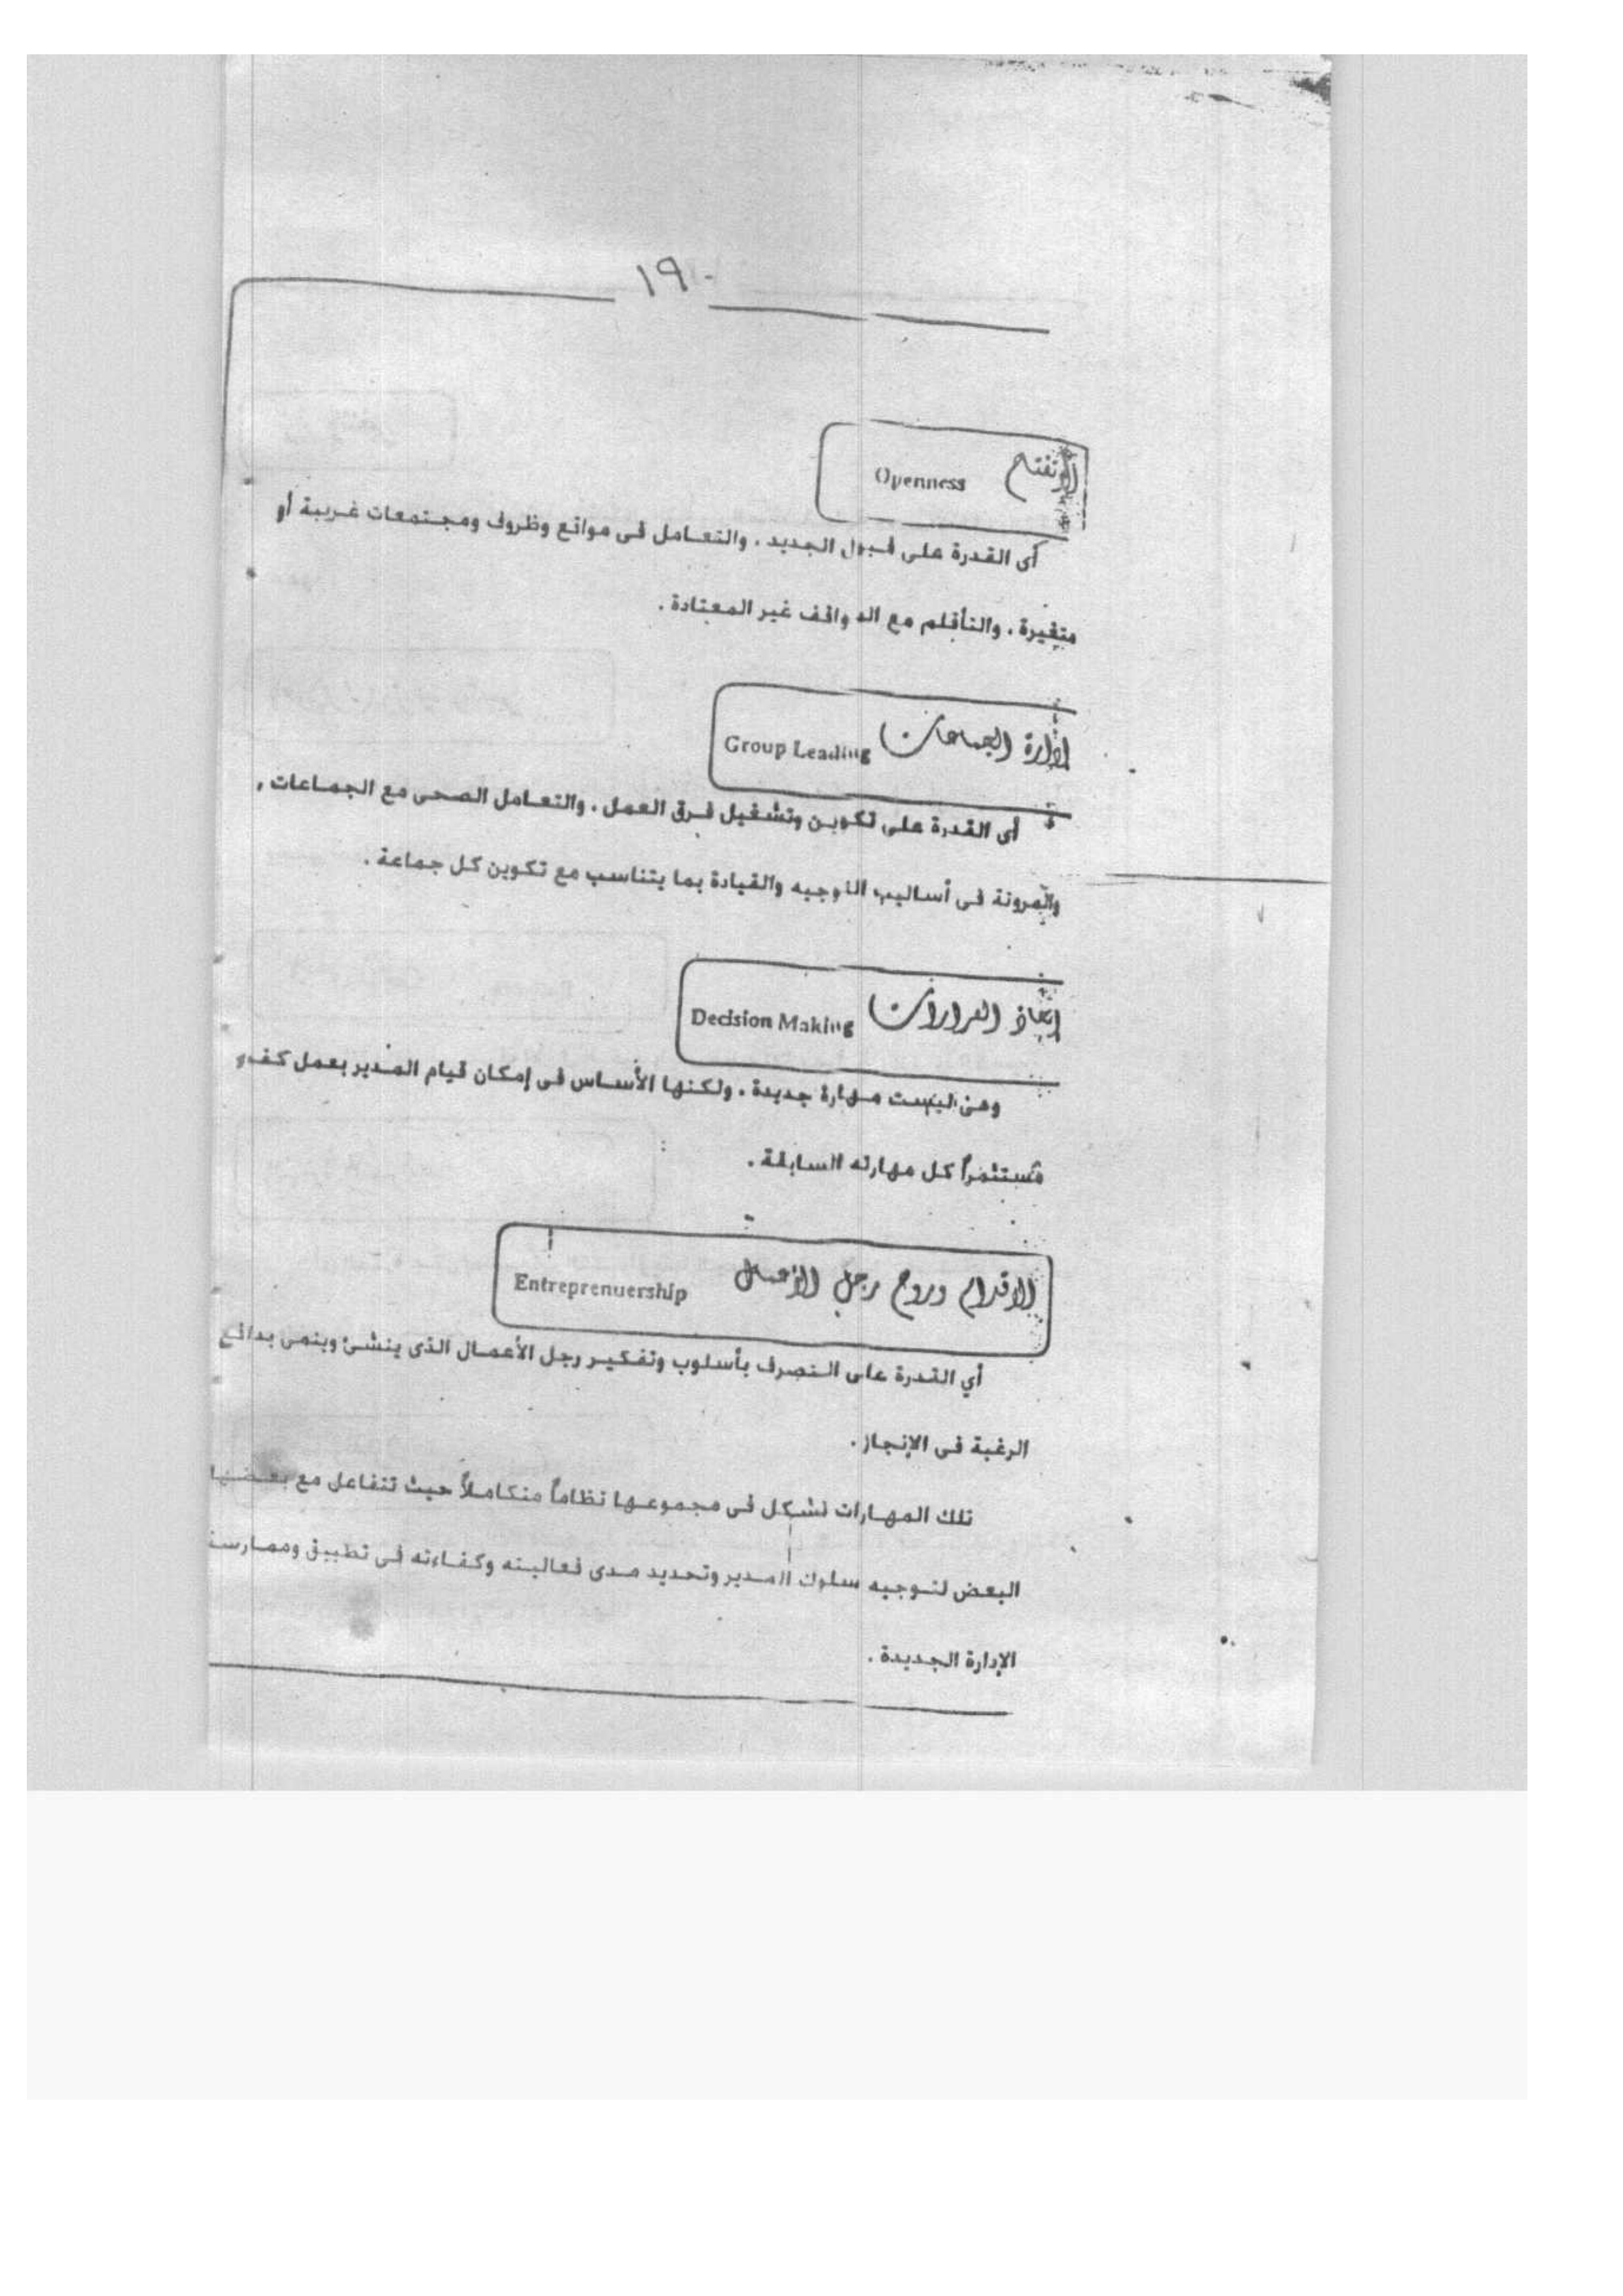 ١٩٠
التفتح Openness
أى القدرة على قبول الجديد . والتعامل فى مواقع وظروف ومجتمعات غريبة أو
متغيرة . والتأقلم مع المواقف غير المعتادة .
إدارة الجماعات Group Leading
أى القدرة على تكوين وتشغيل فرق العمل . والتعامل الصحى مع الجماعات ,
والمرونة فى أساليب التوجيه والقيادة بما يتناسب مع تكوين كل جماعة .
إتخاذ القرارات Decision Making
وهى ليست مهارة جديدة . ولكنها الأساس فى إمكان قيام المدير بعمل كفء
مستثمراً كل مهارته السابقة .
الاقدام وروح رجل الأعمال Entreprenuership
أي القدرة على التصرف بأسلوب وتفكير رجل الأعمال الذى ينشئ وينمى بدافع
الرغبة فى الإنجاز .
تلك المهارات تشكل فى مجموعها نظاماً متكاملاً حيث تتفاعل مع بعضها
البعض لتوجيه سلوك المدير وتحديد مدى فعاليته وكفاءته فى تطبيق وممارسة
الإدارة الجديدة .